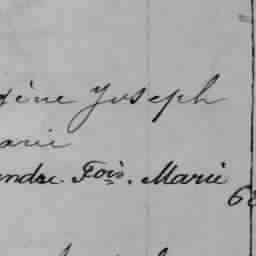 ène Joseph
arie
andre Fois. Marie
6